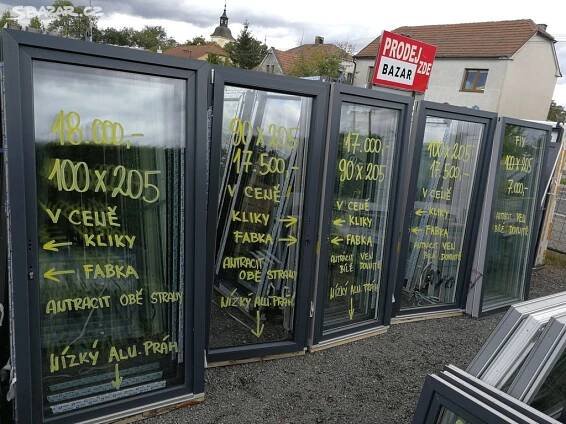 SBAZAR.CZ
PRODEJ
ZDE
BAZAR
18.000,-
100 x 205
V CENĚ
← KLIKY
← FABKA
ANTRACIT OBĚ STRANY
NÍZKÝ ALU. PRÁH
90 x 205
17.500,-
V CENĚ
KLIKY →
FABKA →
ANTRACIT OBĚ STRANY
NÍZKÝ ALU. PRÁH
17.000,-
90 x 205
V CENĚ
← KLIKY
← FABKA
ANTRACIT VEN
BÍLÉ DOVNITŘ
NÍZKÝ ALU.
100 x 205
17.500,-
V CENĚ
← KLIKY
← FABKA
ANTRACIT VEN
BÍLÉ DOVNITŘ
FIX
100 x 205
7.000,-
ANTRACIT VEN
BÍLÉ DOVNITŘ